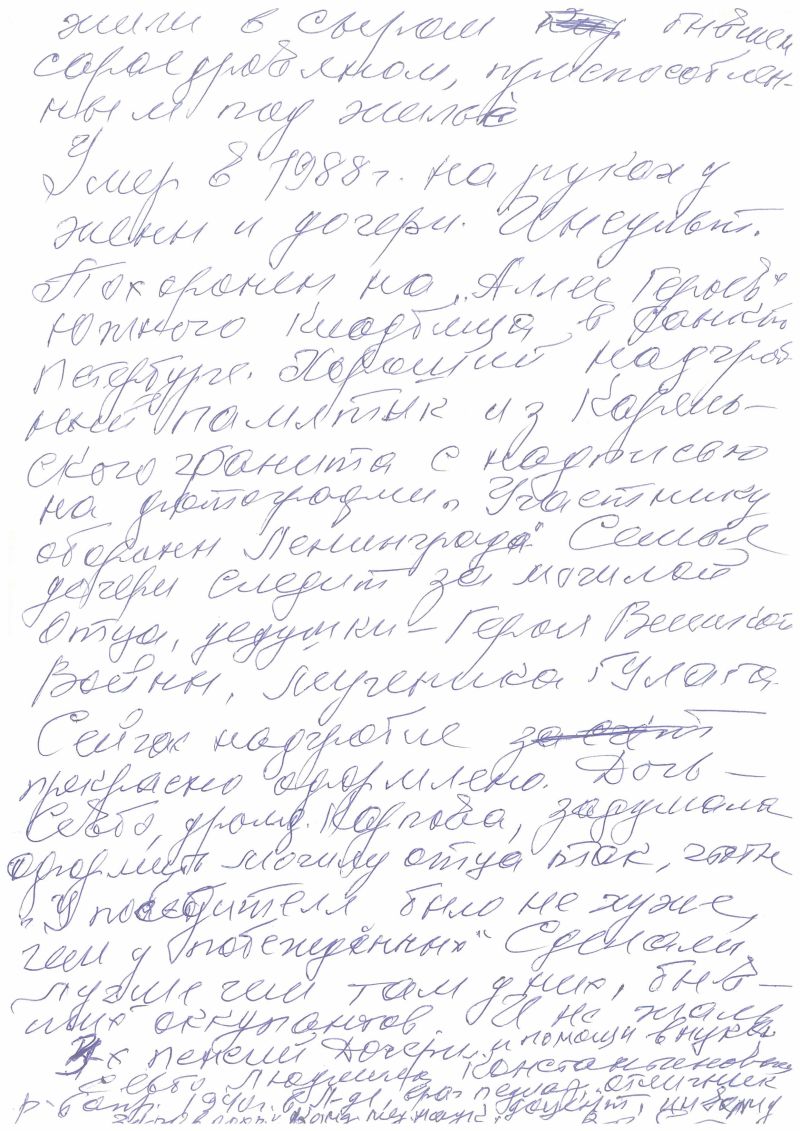 жили в сыром бывшем
сарае дровяном, приспособлен-
ным под жильё
Умер в 1988 г. на руках у
жены и дочери. Инсульт.
Похоронен на „Аллее Героев"
Южного кладбища в Санкт
Петербурге. Хороший надгроб
ный памятник из Карель-
ского гранита с надписью
на фотографии „Участнику
обороны Ленинграда" Семья
дочери следит за могилой
отца, дедушки – Героя Великой
Войны, мученика ГУлага
Сейчас надгробие
прекрасно оформлено. Дочь –
Севбо, урожд. Карпова, задумала
оформить могилу отца так, чтобы
„У победителя было не хуже,
чем у побеждённых" Сделали
лучше чем там у них, быв–
ших оккупантов. И не жаль
3х пенсий Дочери и помощи внуков
Севбо Людмила Константиновна
р. 1940г. в Л-де, отличник
доцент,